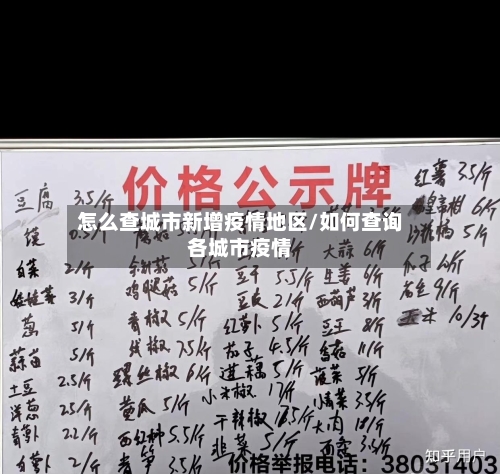 价格公示牌
怎么查城市新增疫情地区/如何查询
各城市疫情
豆腐 3.5/斤
馍 0.5/
白菜 2/斤
娃娃菜 3/斤
葱 5/斤
蒜苗 5/斤
土豆 2.5/斤
洋葱 2.5/斤
青萝卜 2.2/斤
白萝卜 2/斤
鸡腿菇 5/斤
青椒 5/斤
线椒 7.5/斤
螺丝椒 6/斤
黄瓜 5/斤
西红柿 5.5/斤
青笋 3.5/斤
豆干 5.5/斤
豆皮 2/斤
红萝卜 5/斤
茄子 4.5/斤
莲藕 5/斤
小米椒 17/斤
干辣椒
韭菜 5/斤
大蒜 6/斤
生姜 6/斤
西葫芦 3/斤
豆王 8/斤
香菇 11/斤
菠菜 5/斤
油菜 3.5/斤
大肉
西兰
红薯 3.5/斤
6/斤
5/斤
瓜子 10/斤
花生 9/斤
玉米 10/3个
价格举报电话：38031403
知乎用户